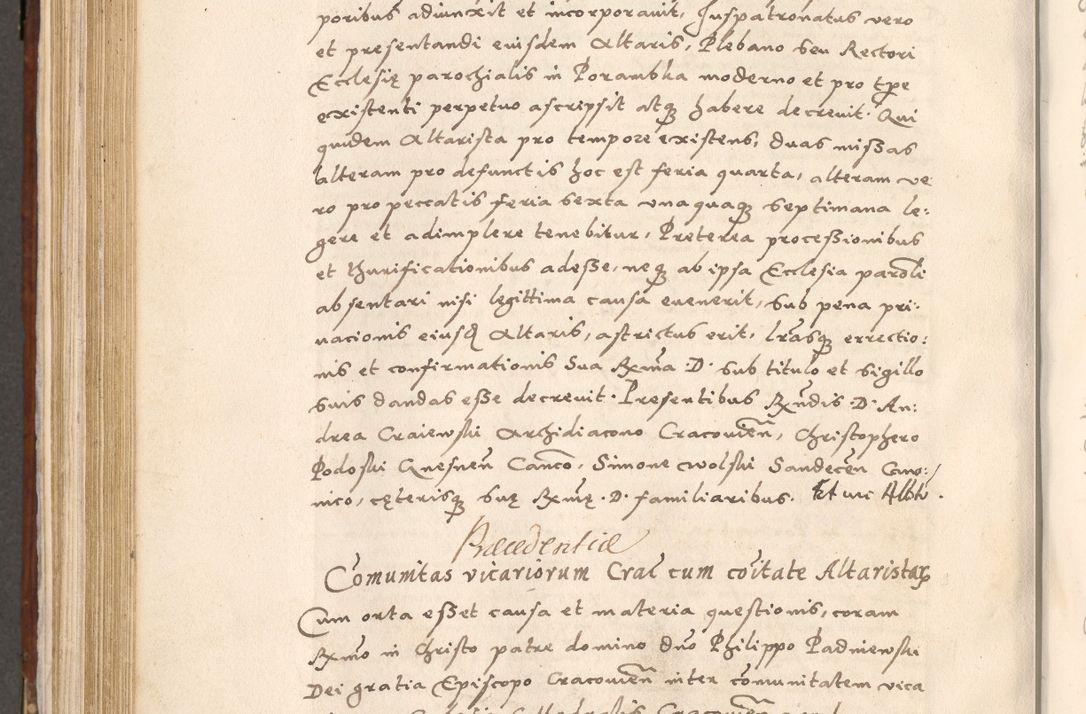 poribus adiunxit et incorporauit, Juspatronatus vero
et presentandi eiusdem Altaris, Plebano seu Rectori
Ecclesię parochialis in Porambka moderno et pro tpe
existenti perpetuo ascripsit atq habere decreuit. Qui
quidem Altarista pro tempore existens, duas missas
alteram pro defunctis hoc est feria quarta, alteram ve
ro pro peccatis feria sexta vnaquaq septimana le:
gere et adimplere tenebitur, Preterea processionibus
et thurificationibus adesse, neq ab ipsa Ecclesia parōli
absentari nisi legittima causa euenerit, sub pena pri:
uacionis eiusd Altaris, astrictus erit, lrasq errectio:
nis et confirmationis Sua Rxma D. sub titulo et sigillo
suis dandas esse decreuit. Presentibus Rxndis D. An:
drea Craiewski Archidiacono Cracouien, Christophero
Podoski Gnesnen Canco, Simone wolski Sandecen Cano:
nico, cęterisq suę Rxmę D. familiaribus. Et me Alb
Præcedentiæ
Comunitas vicariorum Cral cum coitate Altaristar
Cum orta esset causa et materia questionis, coram
Rxmo in Christo patre domino dno Philippo Padniewski
Dei gratia Episcopo Cracouien inter comunitatem vica